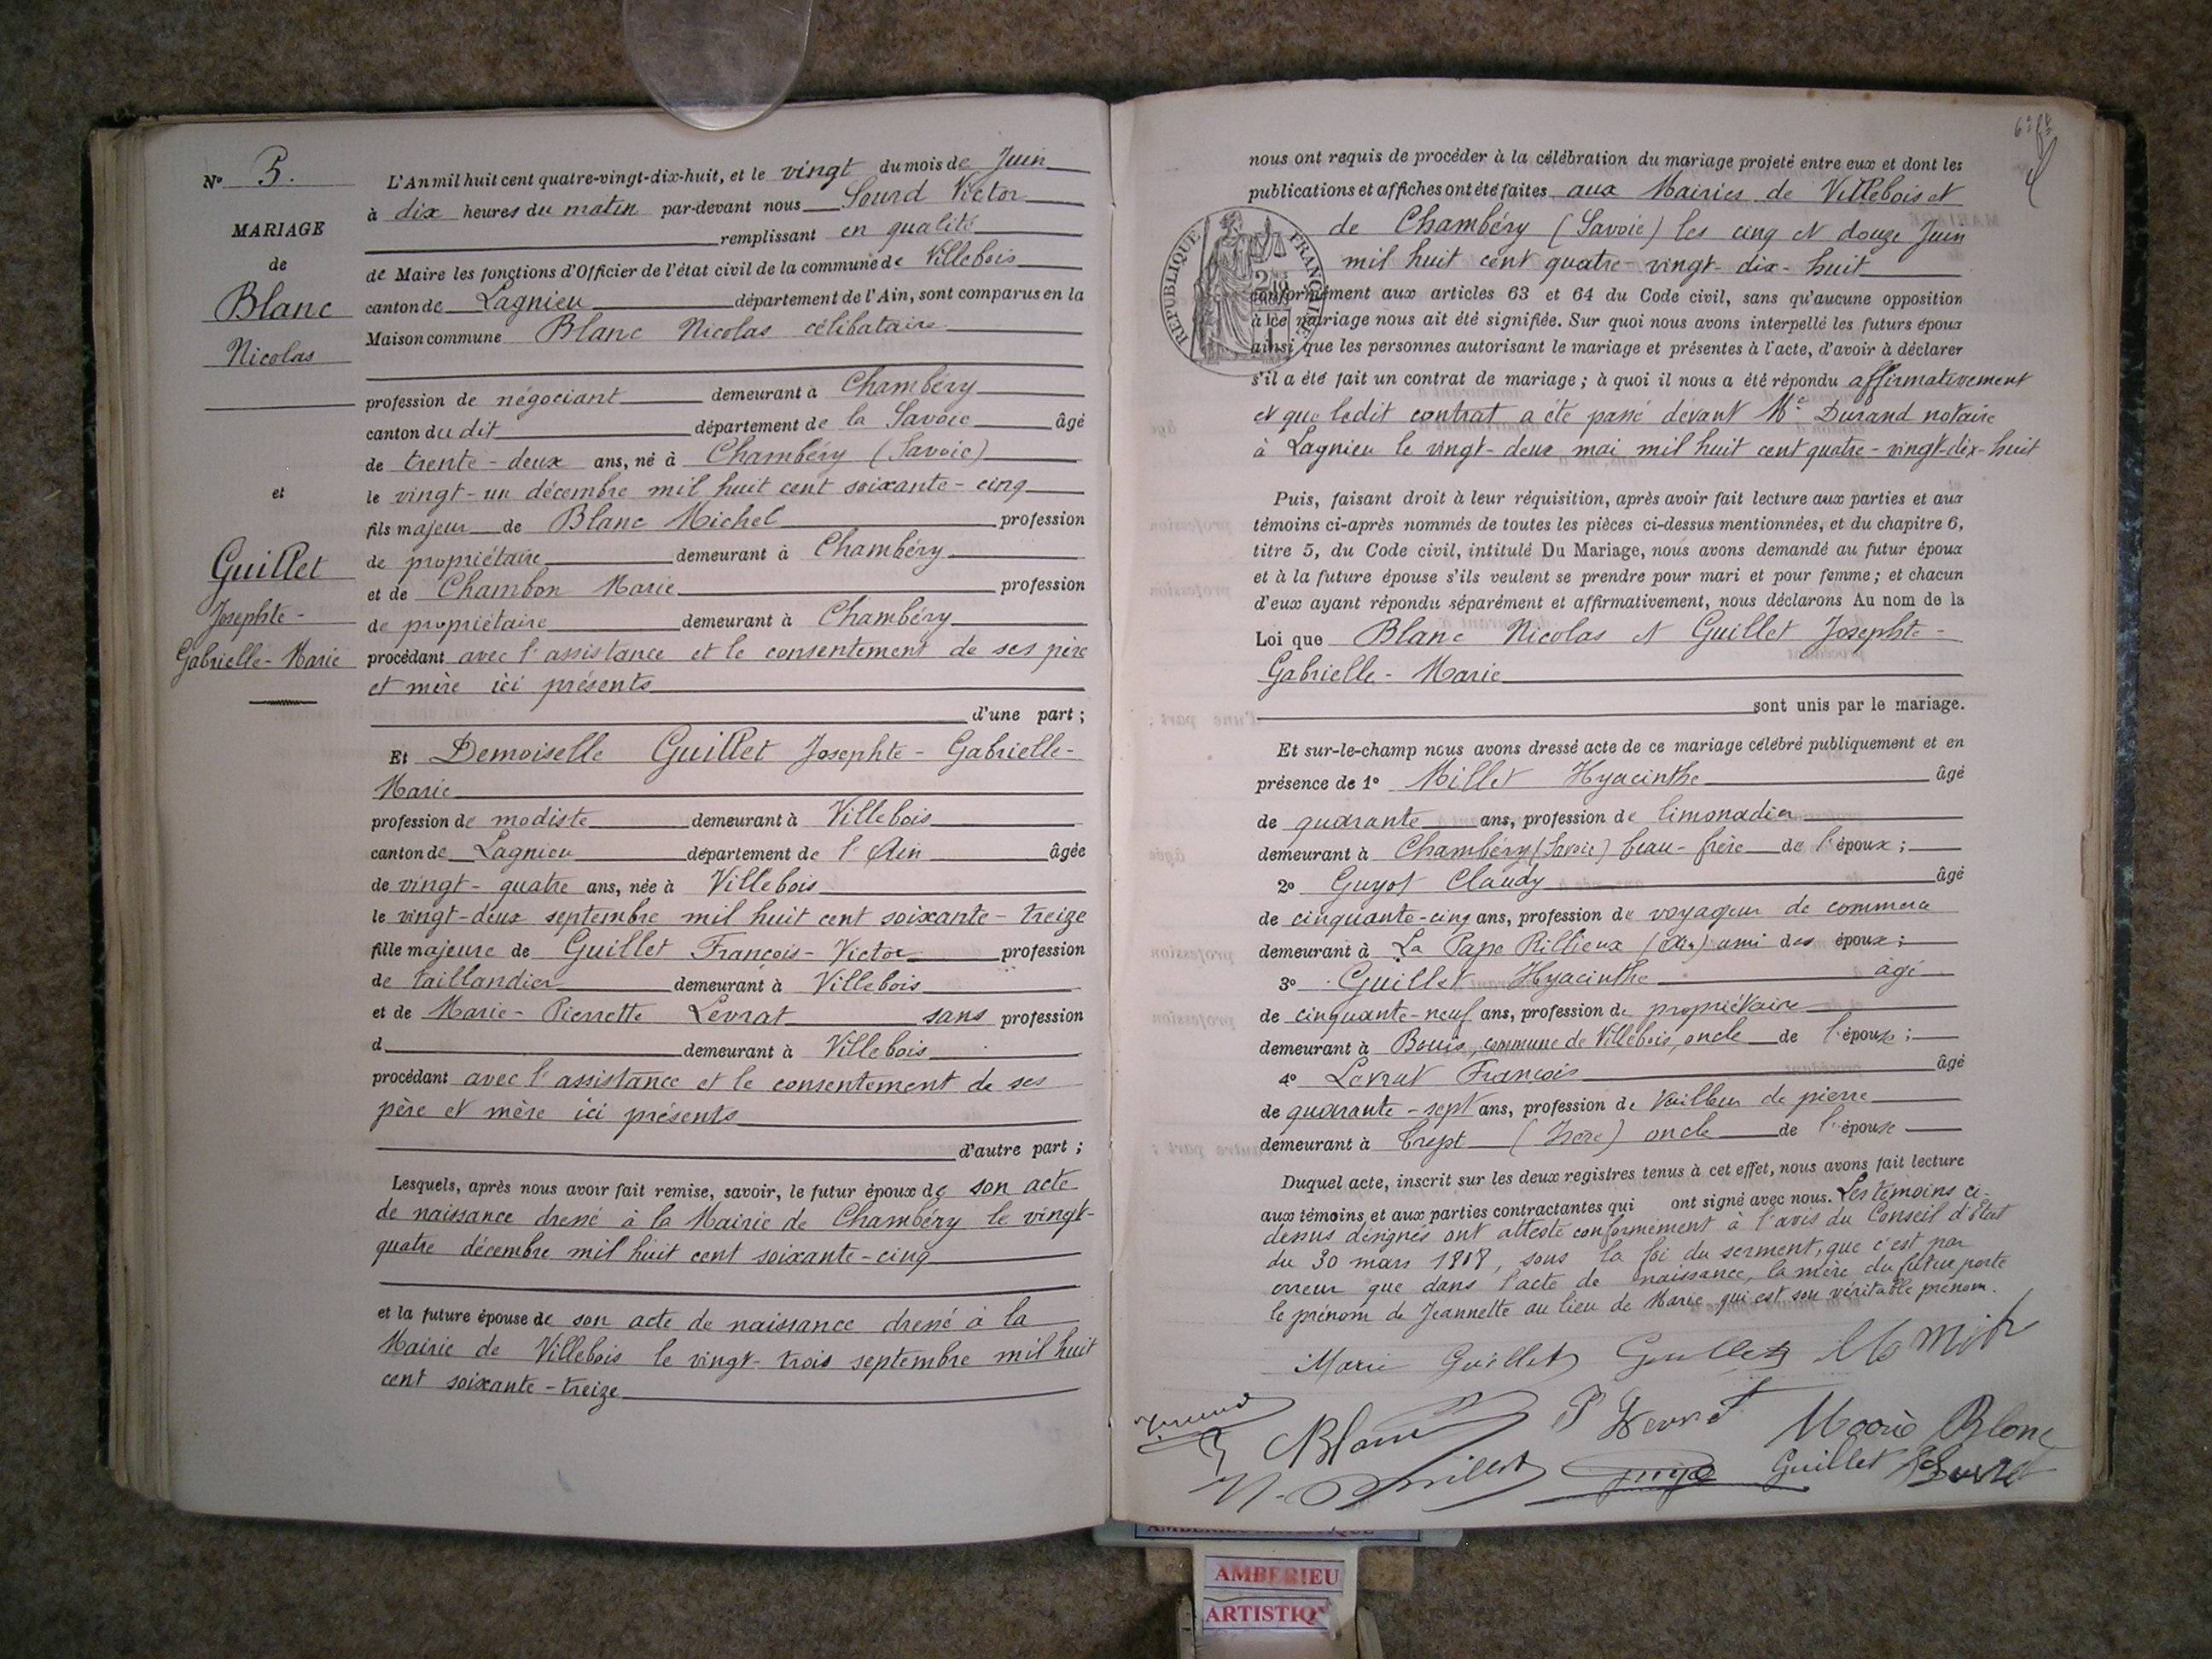 Nº 5.
MARIAGE
de
Blanc
Nicolas
et
Guillet
Josephte-
Gabrielle-Marie
L'An mil huit cent quatre-vingt-dix-huit, et le vingt du mois de Juin
à dix heures du matin par-devant nous Sourd Victor
remplissant en qualité
de Maire les fonctions d'Officier de l'état civil de la commune de Villebois
canton de Lagnieu département de l'Ain, sont comparus en la
Maison commune Blanc Nicolas célibataire
profession de négociant demeurant à Chambéry
canton du dit département de la Savoie âgé
de trente-deux ans, né à Chambéry (Savoie)
le vingt-un décembre mil huit cent soixante-cinq
fils majeur de Blanc Michel profession
de propriétaire demeurant à Chambéry
et de Chambon Marie profession
de propriétaire demeurant à Chambéry
procédant avec l'assistance et le consentement de ses père
et mère ici présents
d'une part ;
Et Demoiselle Guillet Josephte-Gabrielle-
Marie
profession de modiste demeurant à Villebois
canton de Lagnieu département de l'Ain âgée
de vingt-quatre ans, née à Villebois
le vingt-deux septembre mil huit cent soixante-treize
fille majeure de Guillet François-Victor profession
de taillandier demeurant à Villebois
et de Marie-Pierrette Levrat sans profession
d demeurant à Villebois
procédant avec l'assistance et le consentement de ses
père et mère ici présents
d'autre part ;
Lesquels, après nous avoir fait remise, savoir, le futur époux de son acte
de naissance dressé à la Mairie de Chambéry le vingt-
quatre décembre mil huit cent soixante-cinq
et la future épouse de son acte de naissance dressé à la
Mairie de Villebois le vingt-trois septembre mil huit
cent soixante-treize
nous ont requis de procéder à la célébration du mariage projeté entre eux et dont les
publications et affiches ont été faites aux Mairies de Villebois et
de Chambéry (Savoie) les cinq et douze Juin
mil huit cent quatre-vingt-dix-huit
REPUBLIQUE FRANÇAISE
conformément aux articles 63 et 64 du Code civil, sans qu'aucune opposition
à ce mariage nous ait été signifiée. Sur quoi nous avons interpellé les futurs époux
ainsi que les personnes autorisant le mariage et présentes à l'acte, d'avoir à déclarer
s'il a été fait un contrat de mariage ; à quoi il nous a été répondu affirmativement
et que ledit contrat a été passé devant Me Durand notaire
à Lagnieu le vingt-deux mai mil huit cent quatre-vingt-dix-huit
Puis, faisant droit à leur réquisition, après avoir fait lecture aux parties et aux
témoins ci-après nommés de toutes les pièces ci-dessus mentionnées, et du chapitre 6,
titre 5, du Code civil, intitulé Du Mariage, nous avons demandé au futur époux
et à la future épouse s'ils veulent se prendre pour mari et pour femme ; et chacun
d'eux ayant répondu séparément et affirmativement, nous déclarons Au nom de la
Loi que Blanc Nicolas et Guillet Josephte-
Gabrielle-Marie
sont unis par le mariage.
Et sur-le-champ nous avons dressé acte de ce mariage célébré publiquement et en
présence de 1º Millet Hyacinthe âgé
de quarante ans, profession de limonadier
demeurant à Chambéry (Savoie) beau-frère de l'époux ;
2º Guyot Claudy âgé
de cinquante-cinq ans, profession de voyageur de commerce
demeurant à La Pape Rillieux (Ain) ami des époux ;
3º Guillet Hyacinthe âgé
de cinquante-neuf ans, profession de propriétaire
demeurant à Bouis, commune de Villebois, oncle de l'épouse ;
4º Levrat François âgé
de quarante-sept ans, profession de tailleur de pierre
demeurant à Crept (Isère) oncle de l'épouse
Duquel acte, inscrit sur les deux registres tenus à cet effet, nous avons fait lecture
aux témoins et aux parties contractantes qui ont signé avec nous. Les témoins ci-
dessus désignés ont attesté conformément à l'avis du Conseil d'Etat
du 30 mars 1808, sous la foi du serment, que c'est par
erreur que dans l'acte de naissance, la mère du futur porte
le prénom de Jeannette au lieu de Marie qui est son véritable prénom.
Marie Guillet Guillet
Blanc P Levrat Marie Blanc
Guillet
AMBERIEU ARTISTIQUE
AMBERIEU
ARTISTIQ